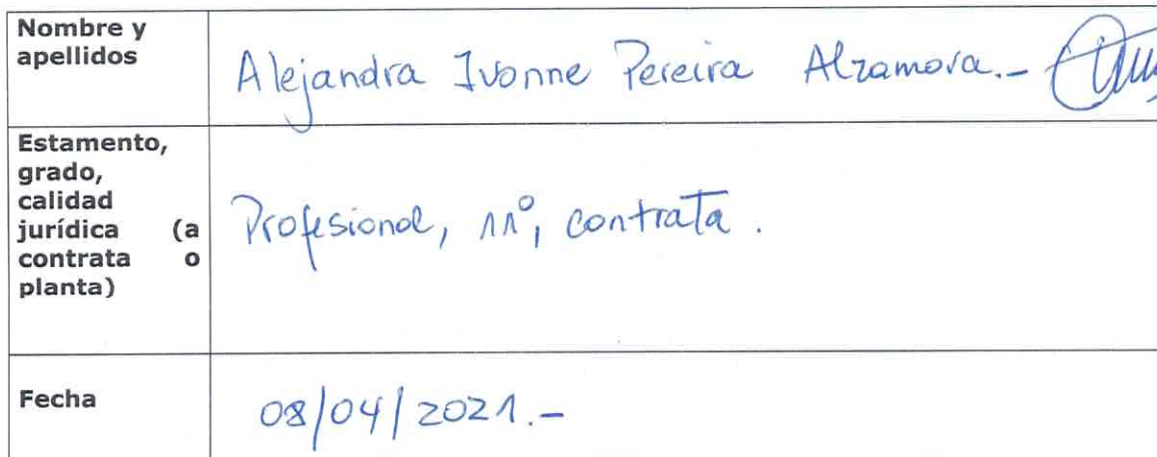 Nombre y
apellidos
Alejandra Ivonne Pereira Alzamora.-
Estamento,
grado,
calidad
jurídica (a
contrata o
planta)
Profesional, 11°, contrata.
Fecha
08/04/2021.-